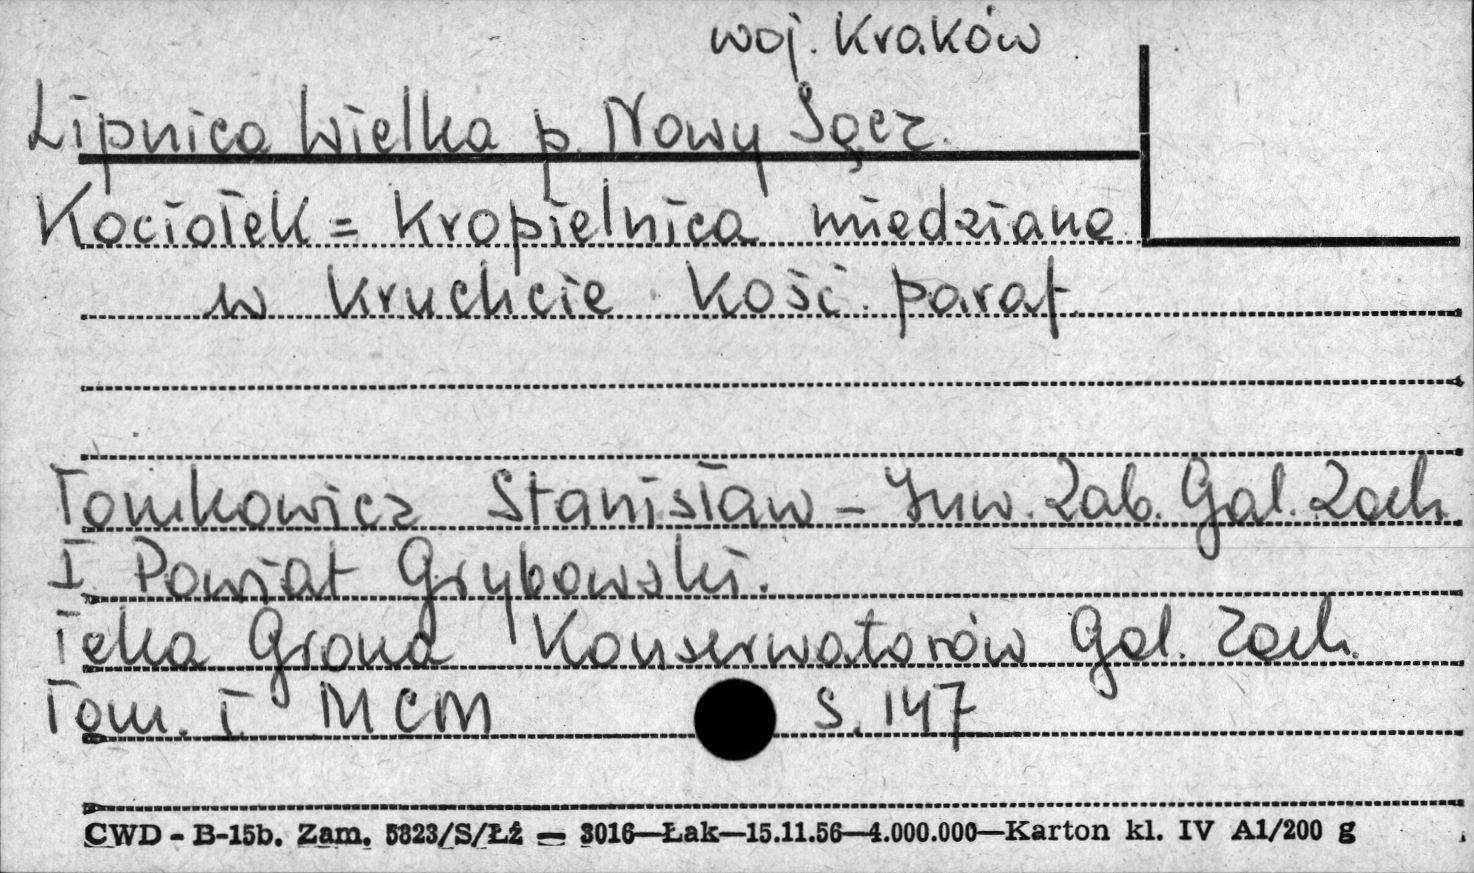 woj. Kraków
Lipnica Wielka p. Nowy Sącz.
Kociołek = Kropielnica miedziana
w kruchcie kość. paraf.
Tomkowicz Stanisław – Inw. Zab. Gal. Zach
I Powiat Grybowski.
Teka Grona Konserwatorów Gal. Zach.
Tom. I MCM s. 147
CWD - B-15b. Zam. 5823/S/ŁŹ — 3016—Łak—15.11.56—4.000.000—Karton kl. IV A1/200 g